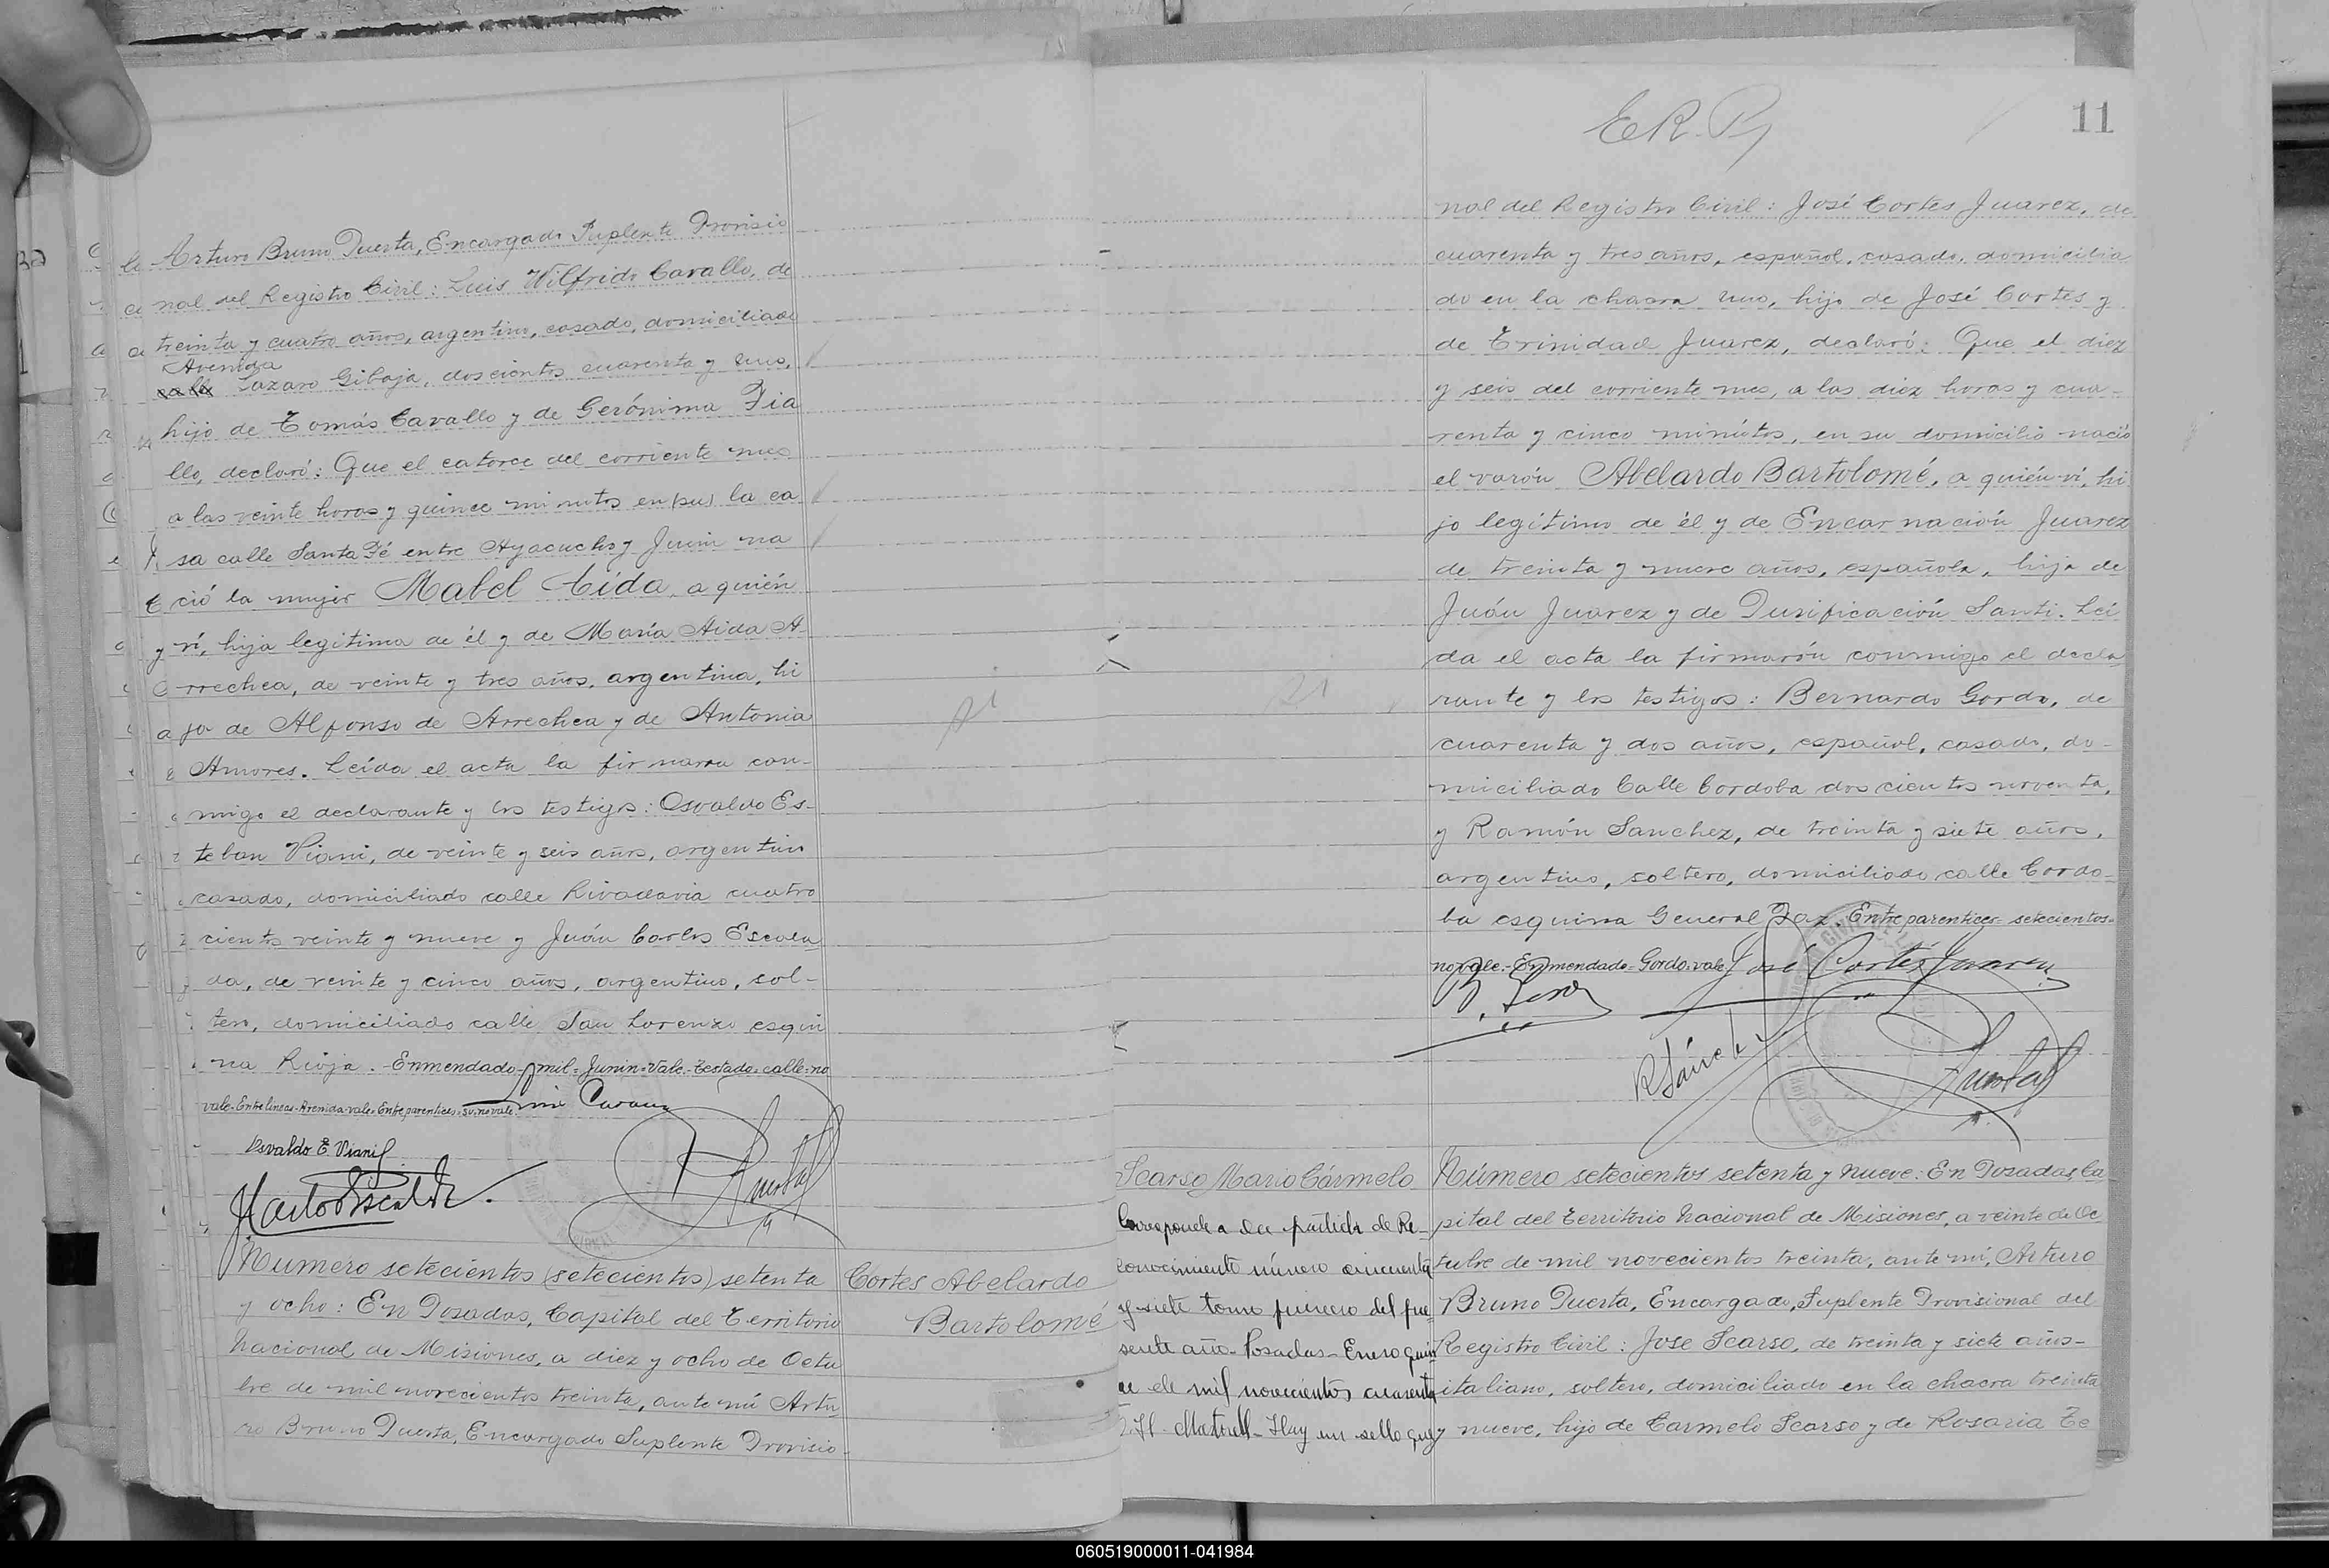 Arturo Bruno Puerta, Encargado Suplente Provisio
nal del Registro Civil: Luis Wilfrido Cavallo, de
treinta y cuatro años, argentino, casado, domiciliado
Avenida
calle Lazaro Gibaja, doscientos cuarenta y uno,
hijo de Tomás Cavallo y de Gerónima Fia
llo, declaró: Que el catorce del corriente mes
a las veinte horas y quince minutos en (su) la ca
sa calle Santa Fé entre Ayacucho y Junin na
ció la mujer Mabel Aida, a quién
ví, hija legitima de él y de María Aida A-
rrechea, de veinte y tres años, argentina, hi
ja de Alfonso de Arrechea y de Antonia
Amores. Leída el acta la firmaron con-
migo el declarante y los testigos: Osvaldo Es-
teban Viani, de veinte y seis años, argentino
casado, domiciliado calle Rivadavia cuatro
cientos veinte y nueve y Juán Carlos Escala
da, de veinte y cinco años, argentino, sol-
tero, domiciliado calle San Lorenzo esqui
na Rioja. Enmendado= mil= Junin=Vale.-Testado=calle=no
vale.-Entrelineas=Avenida=vale.-Entreparentices=su=no vale
Osvaldo E. Viani
Número setecientos (setecientos) setenta
y ocho: En Posadas, Capital del Territorio
Nacional de Misiones, a diez y ocho de Octu
bre de mil novecientos treinta, ante mí Artu
ro Bruno Puerta, Encargado Suplente Provisio-
Cortes Abelardo
Bartolomé
21
E.R.P.
11
nal del Registro Civil: José Cortes Juarez, de
cuarenta y tres años, español, casado, domicilia
do en la chacra uno, hijo de José Cortes y
de Trinidad Juarez, declaró: Que el diez
y seis del corriente mes, a las diez horas y cua-
renta y cinco minútos, en su domicilio nació
el varón Abelardo Bartolomé, a quién ví, hi
jo legítimo de él y de Encarnación Juarez
de treinta y nueve años, española, hija de
Juán Juarez y de Purificación Santi. Leí
da el acta la firmarón conmigo el decla
rante y los testigos: Bernardo Gordo, de
cuarenta y dos años, español, casado, do-
miciliado Calle Cordoba doscientos noventa,
y Ramón Sanchez, de treinta y siete años,
argentino, soltero, domiciliado calle Cordo-
ba esquina General Paz. Entreparentices= setecientos=
no vale.- Enmendado= Gordo=vale José Cortés Juarez
R Sánchez
21
Scarso Mario Cármelo
Corresponde a la partida de Re-
conocimiento número cincuenta
y siete tomo primero del pre-
sente año- Posadas- Enero quin
ce de mil novecientos cuarenta
Hay un sello que
Número setecientos setenta y nueve: En Posadas, Ca
pital del Territorio Nacional de Misiones, a veinte de Oc
tubre de mil novecientos treinta, ante mí, Arturo
Bruno Puerta, Encargado, Suplente Provisional del
Registro Civil: Jose Scarso, de treinta y siete años-
italiano, soltero, domiciliado en la chacra treinta
y nueve, hijo de Carmelo Scarso y de Rosaria Te
060519000011-041984